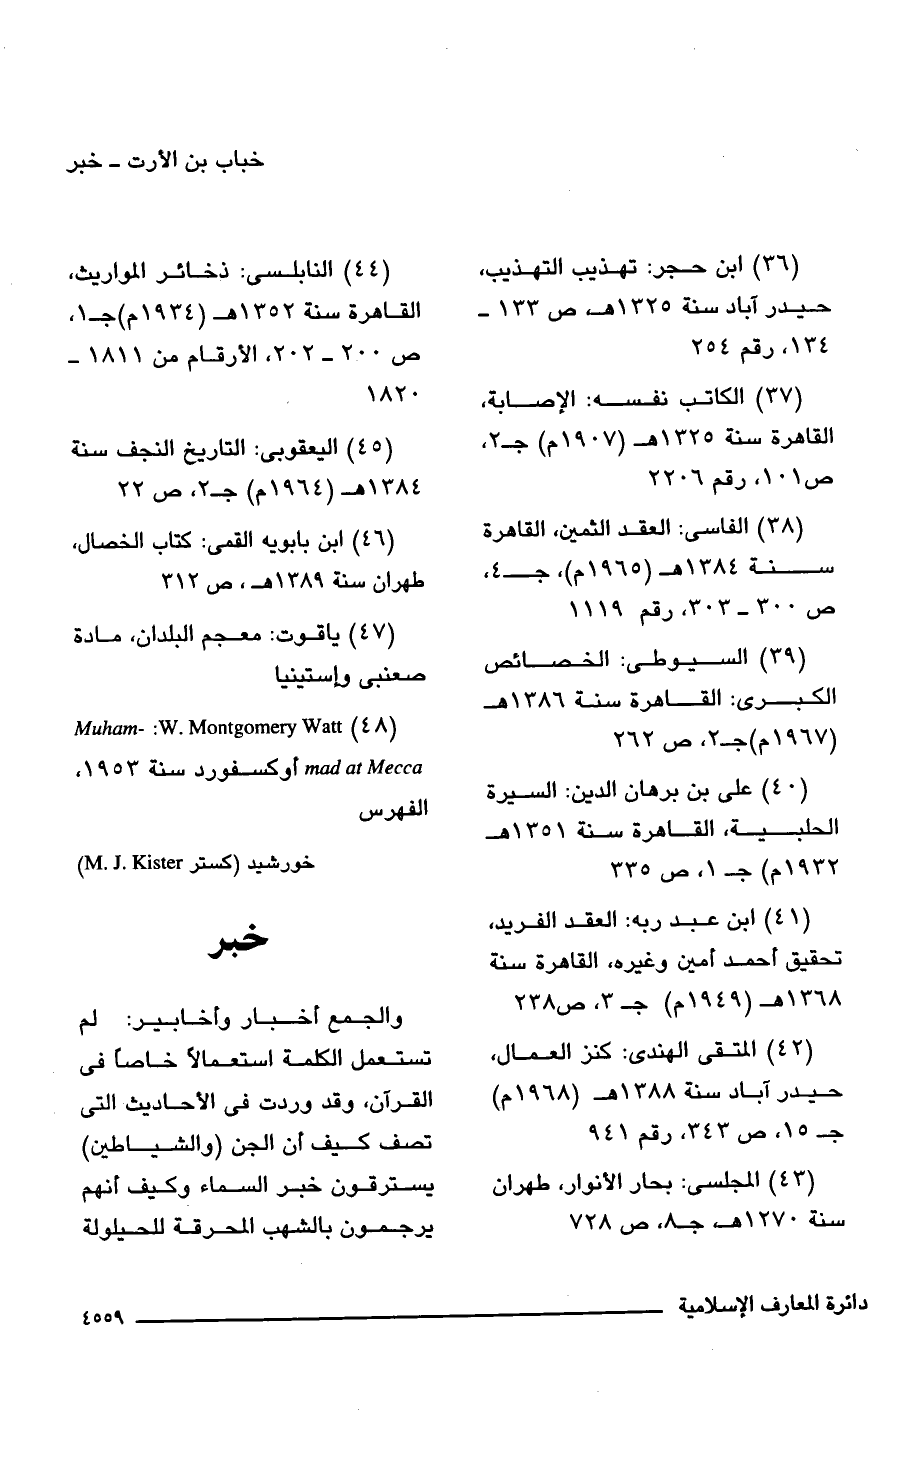 خباب بن الأرت ـ خبر
(٣٦) ابن حجر: تهذيب التهذيب،
حيدر آباد سنة ١٣٢٥هـ، ص ١٣٣ ـ
١٣٤، رقم ٢٥٤
(٣٧) الكاتب نفسه: الإصابة،
القاهرة سنة ١٣٢٥هـ (١٩٠٧م) جـ٢،
ص١٠١، رقم ٢٢٠٦
(٣٨) الفاسى: العقد الثمين، القاهرة
سنة ١٣٨٤هـ (١٩٦٥م)، جـ٤،
ص ٣٠٠ ـ ٣٠٣، رقم ١١١٩
(٣٩) السيوطى: الخصائص
الكبرى: القاهرة سنة ١٣٨٦هـ
(١٩٦٧م)جـ٢، ص ٢٦٢
(٤٠) على بن برهان الدين: السيرة
الحلبية، القاهرة سنة ١٣٥١هـ
١٩٣٢م) جـ ١، ص ٣٣٥
(٤١) ابن عبد ربه: العقد الفريد،
تحقيق أحمد أمين وغيره، القاهرة سنة
١٣٦٨هـ (١٩٤٩م) جـ ٣، ص٢٣٨
(٤٢) المتقى الهندى: كنز العمال،
حيدر آباد سنة ١٣٨٨هـ (١٩٦٨م)
جـ ١٥، ص ٣٤٣، رقم ٩٤١
(٤٣) المجلسى: بحار الأنوار، طهران
سنة ١٢٧٠هـ، جـ٨، ص ٧٢٨
(٤٤) النابلسى: ذخائر المواريث،
القاهرة سنة ١٣٥٢هـ (١٩٣٤م)جـ١،
ص ٢٠٠ ـ ٢٠٢، الأرقام من ١٨١١ ـ
١٨٢٠
(٤٥) اليعقوبى: التاريخ النجف سنة
١٣٨٤هـ (١٩٦٤م) جـ٢، ص ٢٢
(٤٦) ابن بابويه القمى: كتاب الخصال،
طهران سنة ١٣٨٩هـ ، ص ٣١٢
(٤٧) ياقوت: معجم البلدان، مادة
صعنبى وإستينيا
(٤٨) W. Montgomery Watt: Muham-
mad at Mecca أوكسفورد سنة ١٩٥٣،
الفهرس
خورشيد (كستر M. J. Kister)
خبر
والجمع أخبار وأخابير: لم
تستعمل الكلمة استعمالاً خاصاً فى
القرآن، وقد وردت فى الأحاديث التى
تصف كيف أن الجن (والشياطين)
يسترقون خبر السماء وكيف أنهم
يرجمون بالشهب المحرقة للحيلولة
دائرة المعارف الإسلامية
٤٥٥٩